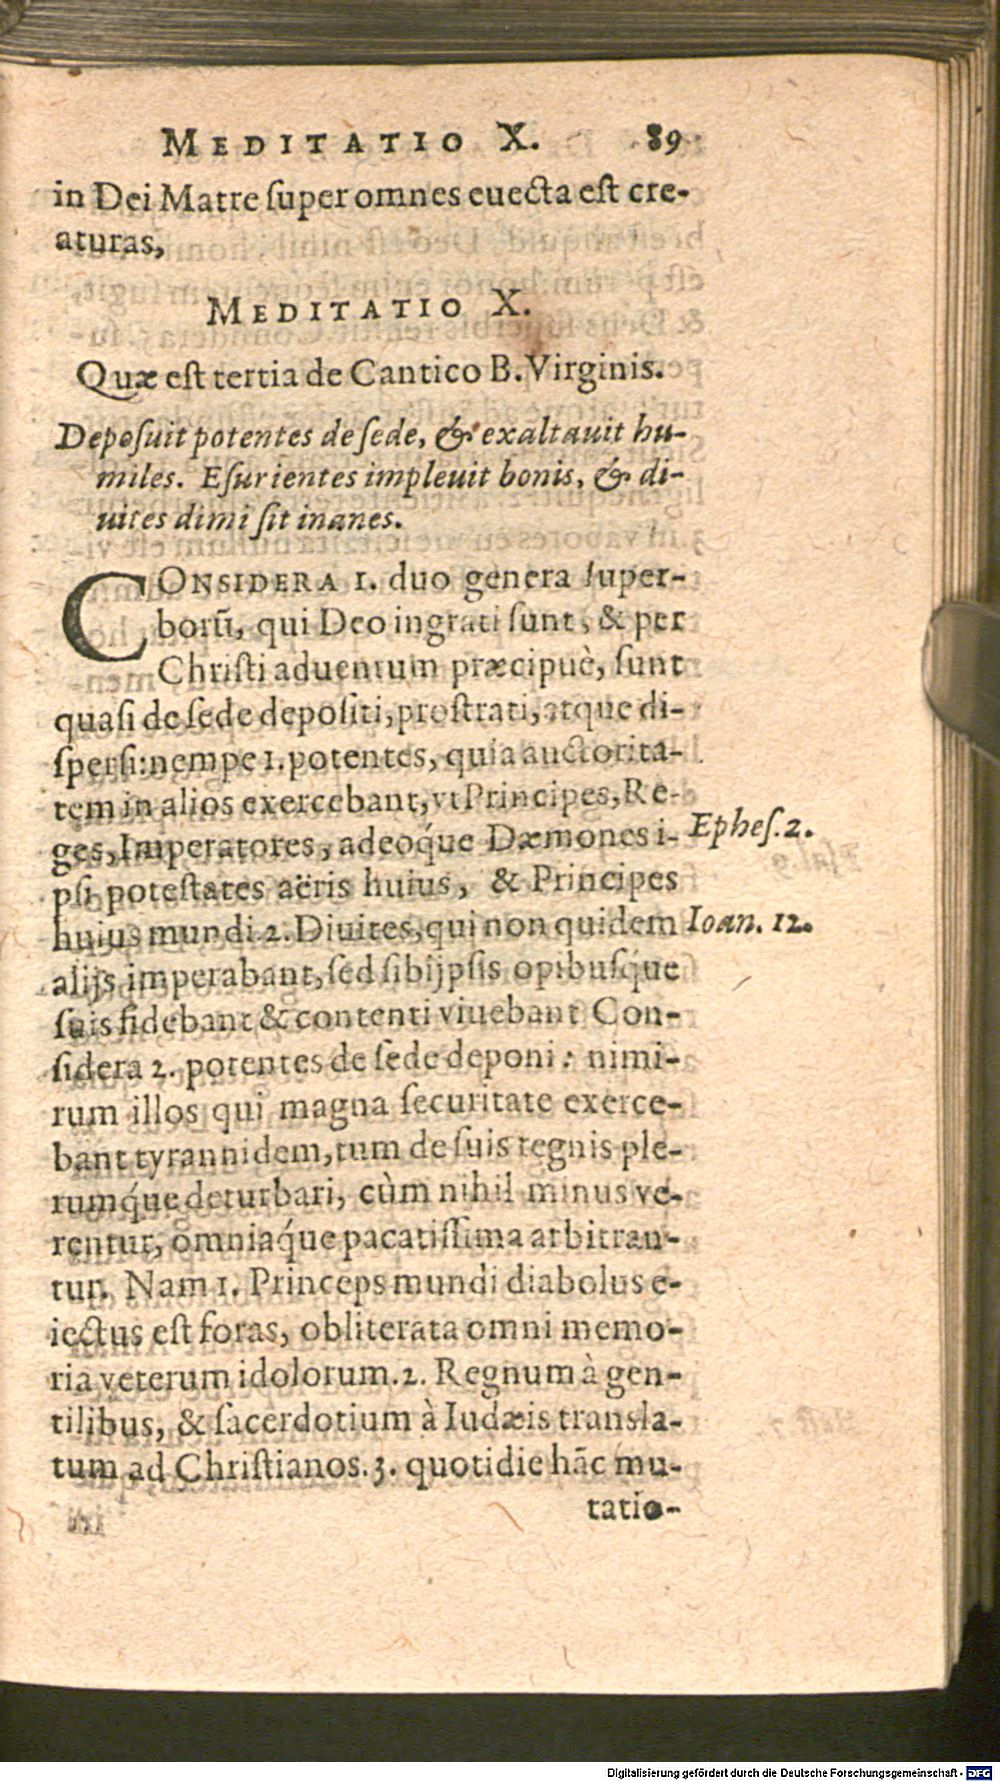 MEDITATIO X. 89
in Dei Matre ſuper omnes euecta eſt cre-
aturas,
MEDITATIO X.
Quæ eſt tertia de Cantico B. Virginis.
Depoſuit potentes de ſede, & exaltauit hu-
miles. Eſurientes impleuit bonis, & di-
uites dimiſit inanes.
CONSIDERA 1. duo genera ſuper-
borũ, qui Deo ingrati ſunt, & per
Chriſti aduentum præcipuè, ſunt
quaſi de ſede depoſiti, proſtrati, atque di-
ſperſi: nempe 1. potentes, quia auctorita-
tem in alios exercebant, vt Principes, Re-
ges, Imperatores, adeoq́ue Dæmones i-
Epheſ. 2.
pſi poteſtates aëris huius, & Principes
huius mundi 2. Diuites, qui non quidem
Ioan. 12.
alijs imperabant, ſed ſibijpſis opibuſq́ue
ſuis fidebant & contenti viuebant Con-
ſidera 2. potentes de ſede deponi: nimi-
rum illos qui magna ſecuritate exerce-
bant tyrannidem, tum de ſuis regnis ple-
rumq́ue deturbari, cùm nihil minus ve-
rentur, omniaq́ue pacatiſſima arbitran-
tur. Nam 1. Princeps mundi diabolus e-
iectus eſt foras, obliterata omni memo-
ria veterum idolorum. 2. Regnum à gen-
tilibus, & ſacerdotium à Iudæis transla-
tum ad Chriſtianos. 3. quotidie hãc mu-
tatio-
Digitalisierung gefördert durch die Deutsche Forschungsgemeinschaft - DFG